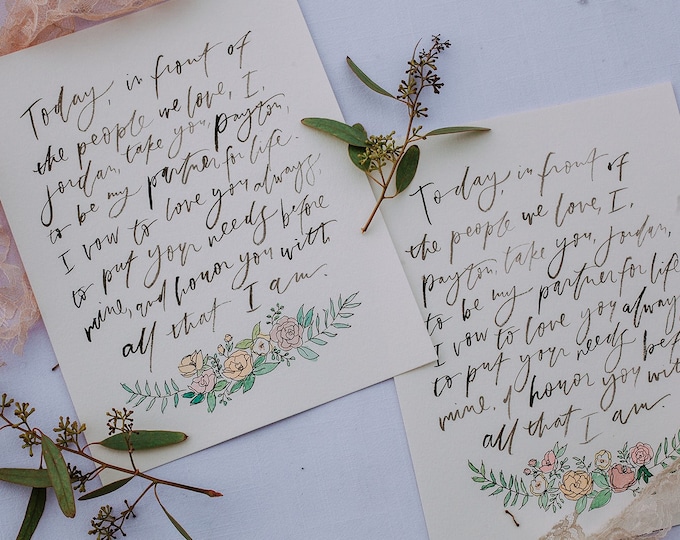 Today, in front of
the people we love, I,
Jordan, take you, Payton,
to be my partner for life.
I vow to love you always,
to put your needs before
mine, and honor you with
all that I am.
Today, in front of
the people we love, I,
Payton, take you, Jordan,
to be my partner for life
I vow to love you always
to put your needs bef
mine, & honor you with
all that I am.